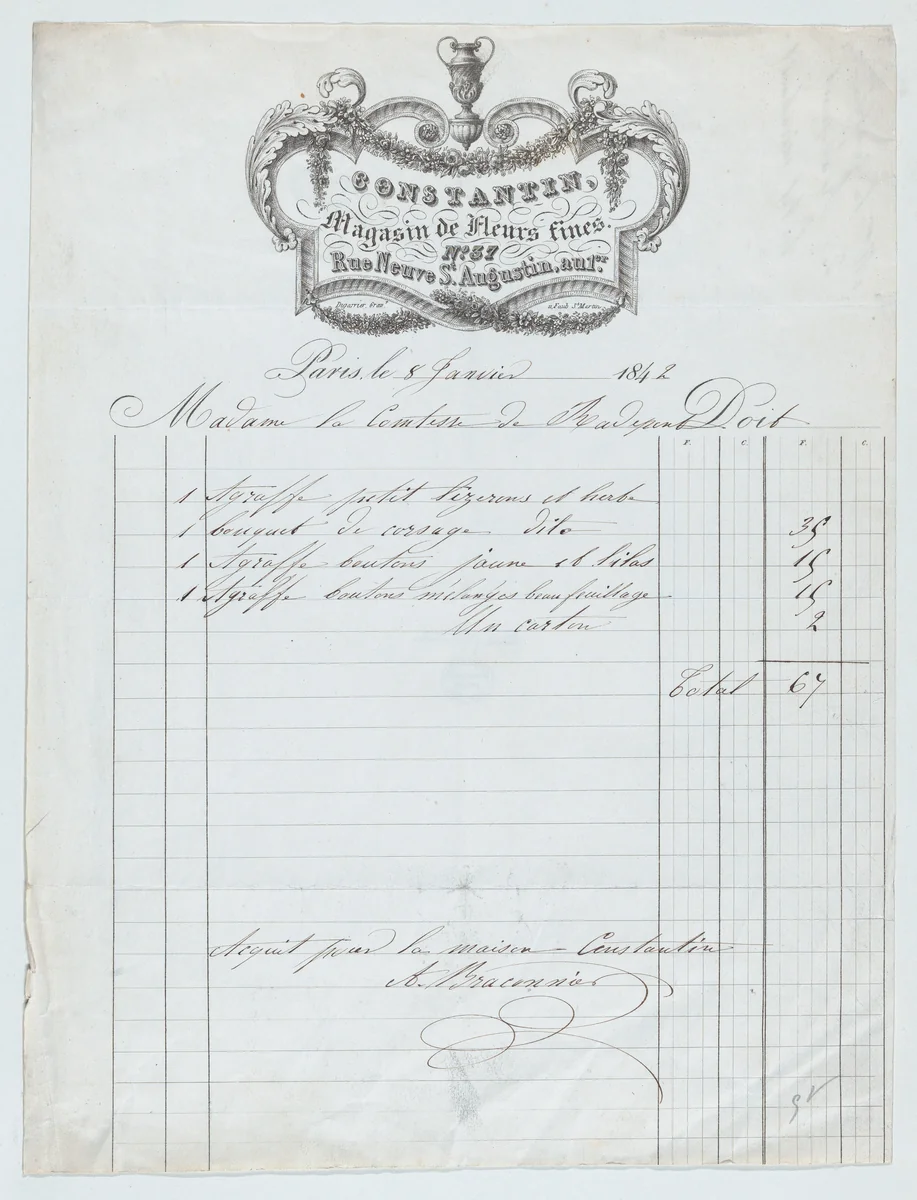 CONSTANTIN,
Magasin de Fleurs fines.
N.º 37
Rue Neuve S.t Augustin, au 1.er
à Faub. S.t Martin
Paris, le 8 Janvier 1842
Madame la Comtesse de Radepont Doit
F. C. F. C.
1 Agraffe petit lizerons et herbe
1 bouquet de corsage dito 35
1 Agraffe boutons jaune et lilas 15
1 Agraffe boutons mélangés beau feuillage 15
Un carton 2
Total 67
Acquit pour la maison Constantin
A. Braconnier